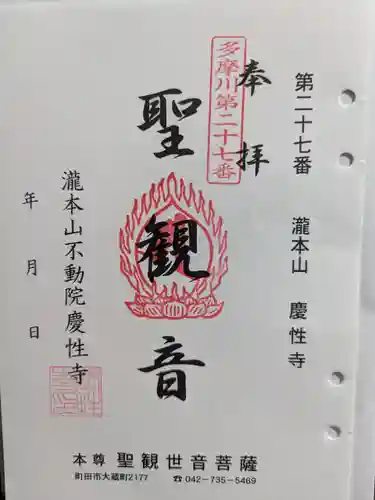 第二十七番 瀧本山 慶性寺
奉拝
多摩川第二十七番
聖観音
瀧本山不動院慶性寺
年月日
本尊 聖観世音菩薩
町田市大蔵町2177 ☎042-735-5469